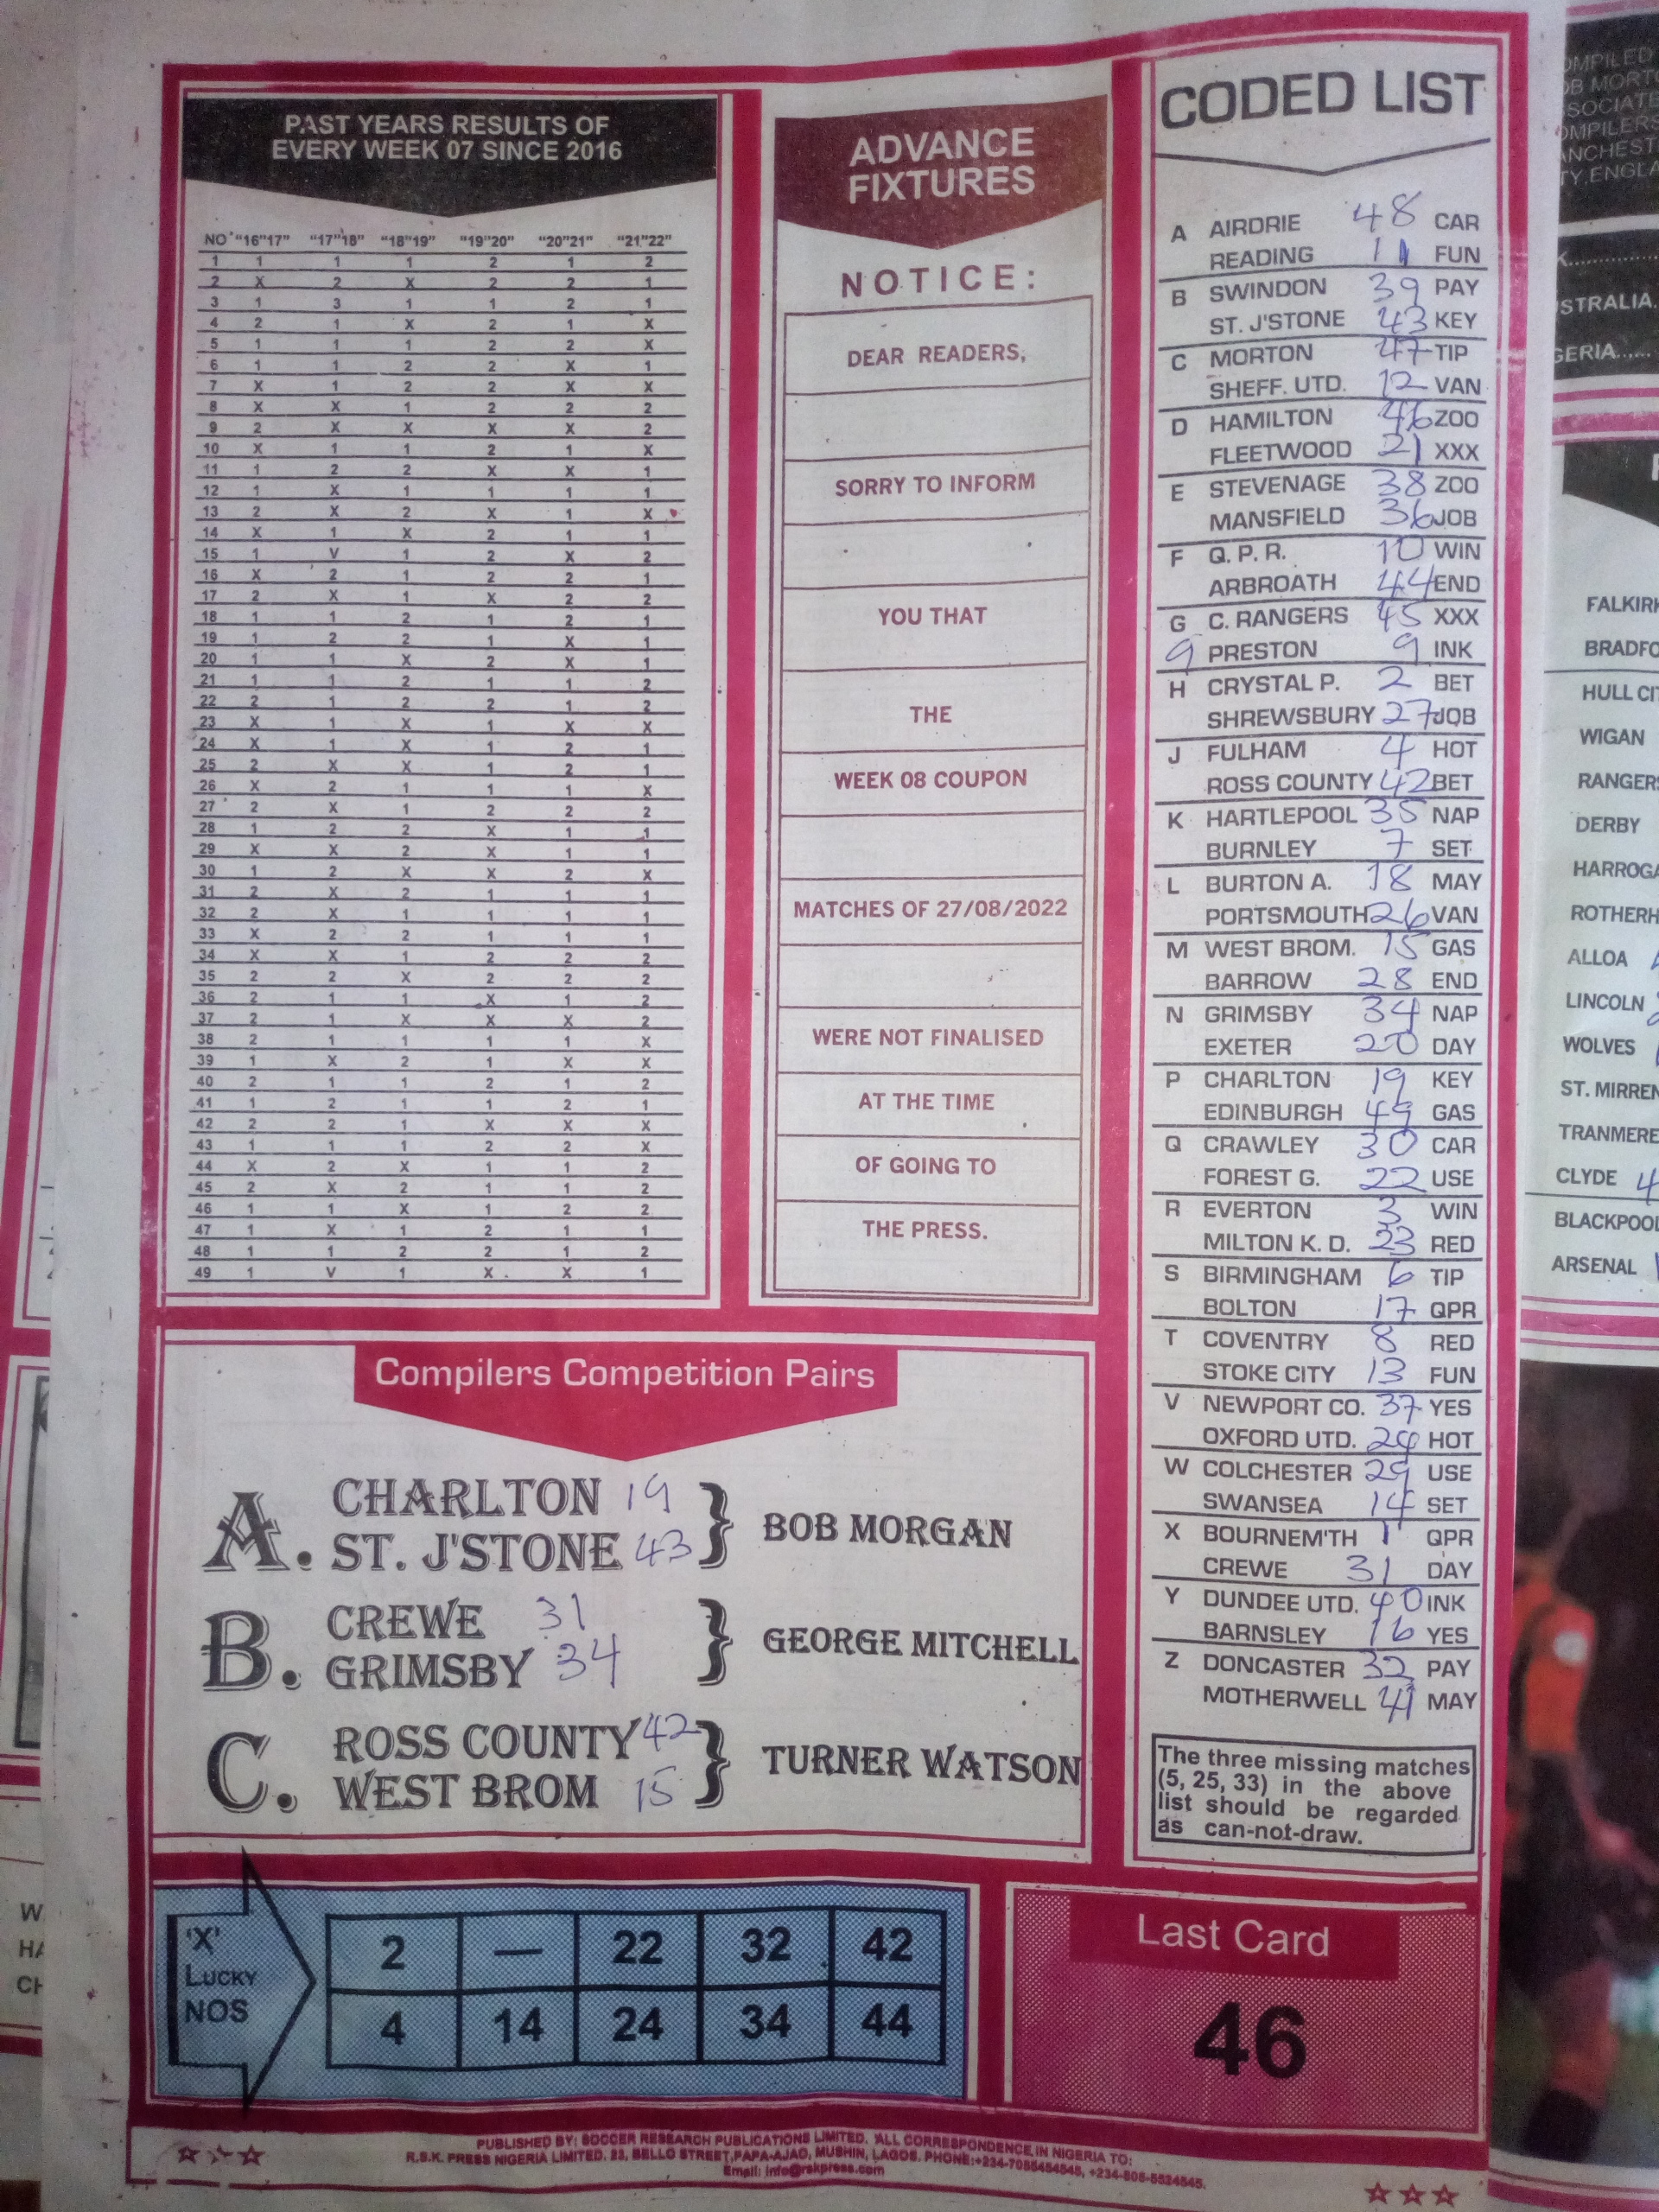 PAST YEARS RESULTS OF
EVERY WEEK 07 SINCE 2016
NO "16"17" "17"18" "18"19" "19"20" "20"21" "21"22"
1 1 1 1 2 1 2
2 X 2 X 2 2 1
3 1 3 1 1 2 1
4 2 1 X 2 1 X
5 1 1 1 2 2 X
6 1 1 2 2 X 1
7 X 1 2 2 X X
8 X X 1 2 2 2
9 2 X X X X 2
10 X 1 1 2 1 X
11 1 2 2 X X 1
12 1 X 1 1 1 1
13 2 X 2 X 1 X
14 X 1 X 2 1 1
15 1 V 1 2 X 2
16 X 2 1 2 2 1
17 2 X 1 X 2 2
18 1 1 2 1 2 1
19 1 2 2 1 X 1
20 1 1 X 2 X 1
21 1 1 2 1 1 2
22 2 1 2 2 1 2
23 X 1 X 1 X X
24 X 1 X 1 2 1
25 2 X X 1 2 1
26 X 2 1 1 1 X
27 2 X 1 2 2 2
28 1 2 2 X 1 1
29 X X 2 X 1 1
30 1 2 X X 2 X
31 2 X 2 1 1 1
32 2 X 1 1 1 1
33 X 2 2 1 1 1
34 X X 1 2 2 2
35 2 2 X 2 2 2
36 2 1 1 X 1 2
37 2 1 X X X 2
38 2 1 1 1 1 X
39 1 X 2 1 X X
40 2 1 1 2 1 2
41 1 2 1 1 2 1
42 2 2 1 X X X
43 1 1 1 2 2 X
44 X 2 X 1 1 2
45 2 X 2 1 1 2
46 1 1 X 1 2 2
47 1 X 1 2 1 1
48 1 1 2 2 1 2
49 1 V 1 X X 1
ADVANCE
FIXTURES
NOTICE:
DEAR READERS,
SORRY TO INFORM
YOU THAT
THE
WEEK 08 COUPON
MATCHES OF 27/08/2022
WERE NOT FINALISED
AT THE TIME
OF GOING TO
THE PRESS.
CODED LIST
A AIRDRIE 48 CAR
READING 11 FUN
B SWINDON 39 PAY
ST. J'STONE 43 KEY
C MORTON 47 TIP
SHEFF. UTD. 12 VAN
D HAMILTON 46 ZOO
FLEETWOOD 21 XXX
E STEVENAGE 38 ZOO
MANSFIELD 36 JOB
F Q. P. R. 10 WIN
ARBROATH 44 END
G C. RANGERS 45 XXX
9 PRESTON 9 INK
H CRYSTAL P. 2 BET
SHREWSBURY 27 JOB
J FULHAM 4 HOT
ROSS COUNTY 42 BET
K HARTLEPOOL 35 NAP
BURNLEY 7 SET
L BURTON A. 18 MAY
PORTSMOUTH 26 VAN
M WEST BROM. 15 GAS
BARROW 28 END
N GRIMSBY 34 NAP
EXETER 20 DAY
P CHARLTON 19 KEY
EDINBURGH 49 GAS
Q CRAWLEY 30 CAR
FOREST G. 22 USE
R EVERTON 3 WIN
MILTON K. D. 23 RED
S BIRMINGHAM 6 TIP
BOLTON 17 QPR
T COVENTRY 8 RED
STOKE CITY 13 FUN
V NEWPORT CO. 37 YES
OXFORD UTD. 24 HOT
W COLCHESTER 29 USE
SWANSEA 14 SET
X BOURNEM'TH 1 QPR
CREWE 31 DAY
Y DUNDEE UTD. 40 INK
BARNSLEY 16 YES
Z DONCASTER 32 PAY
MOTHERWELL 41 MAY
The three missing matches
(5, 25, 33) in the above
list should be regarded
as can-not-draw.
Compilers Competition Pairs
A. CHARLTON 19
ST. J'STONE 43
BOB MORGAN
B. CREWE 31
GRIMSBY 34
GEORGE MITCHELL
C. ROSS COUNTY 42
WEST BROM 15
TURNER WATSON
'X'
LUCKY
NOS
2 — 22 32 42
4 14 24 34 44
Last Card
46
PUBLISHED BY: SOCCER RESEARCH PUBLICATIONS LIMITED. ALL CORRESPONDENCE IN NIGERIA TO:
R.S.K. PRESS NIGERIA LIMITED. 23, BELLO STREET, PAPA-AJAO, MUSHIN, LAGOS. PHONE:+234-7055454545, +234-805-5524545.
Email: info@rskpress.com
WIGAN
DERBY
ALLOA
LINCOLN
WOLVES
CLYDE 4
ARSENAL